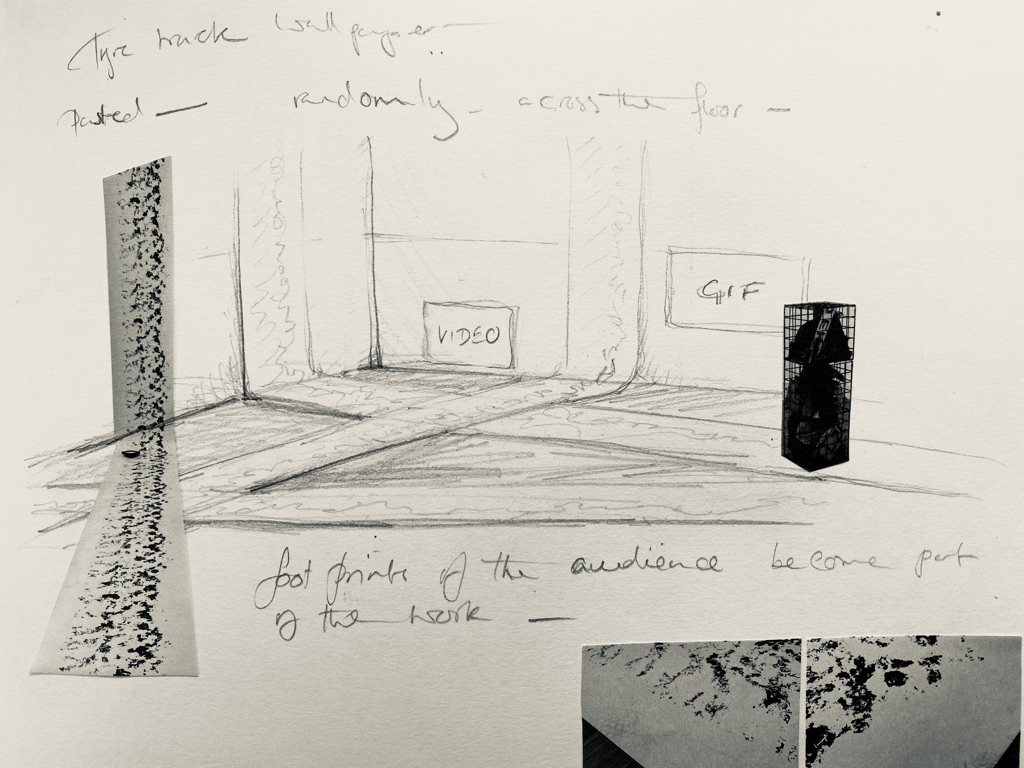 Tyre track wallpaper —
Pasted — randomly — across the floor —
VIDEO
GIF
foot prints of the audience become part
of the work —